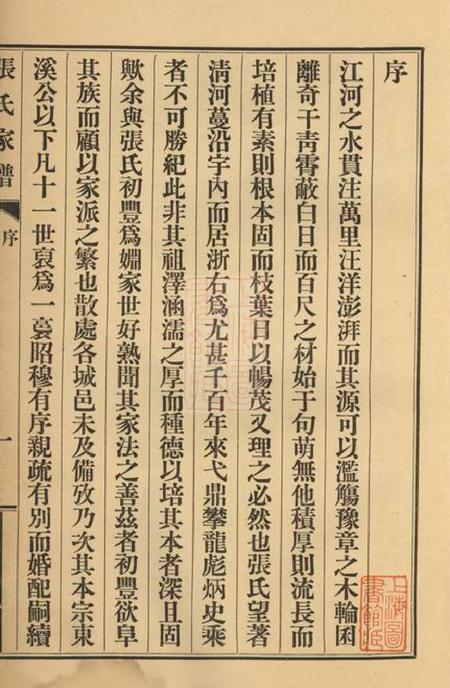 序
江河之水貫注萬里汪洋澎湃而其源可以濫觴豫章之木輪囷
離奇干靑霄蔽白日而百尺之材始于句萌無他積厚則流長而
培植有素則根本固而枝葉日以暢茂又理之必然也張氏望著
淸河蔓沿宇內而居浙右爲尤甚千百年來弋鼎攀龍彪炳史乘
者不可勝紀此非其祖澤涵濡之厚而種德以培其本者深且固
歟余與張氏初豐爲婣家世好熟聞其家法之善茲者初豐欲阜
其族而顧以家派之繁也散處各城邑未及備攷乃次其本宗東
溪公以下凡十一世裒爲一袠昭穆有序親疏有別而婚配嗣續
張氏家譜
序
一
上海圖書館藏